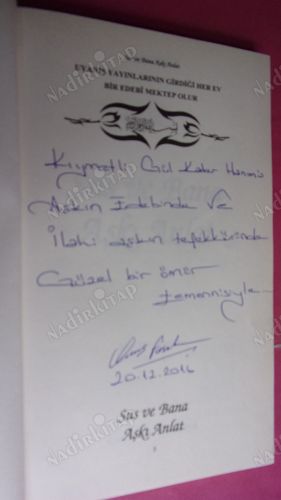 Sus ve Bana Aşkı Anlat
UYANIŞ YAYINLARININ GİRDİĞİ HER EV
BİR EDEBİ MEKTEP OLUR
Kıymetli Gül Katar Hanım'a
Aşkın Edebinde ve
İlahi aşkın tefekküründe
Güzel bir ömür
temennisiyle...
20.12.2014
Sus ve Bana
Aşkı Anlat
NADİRKİTAP